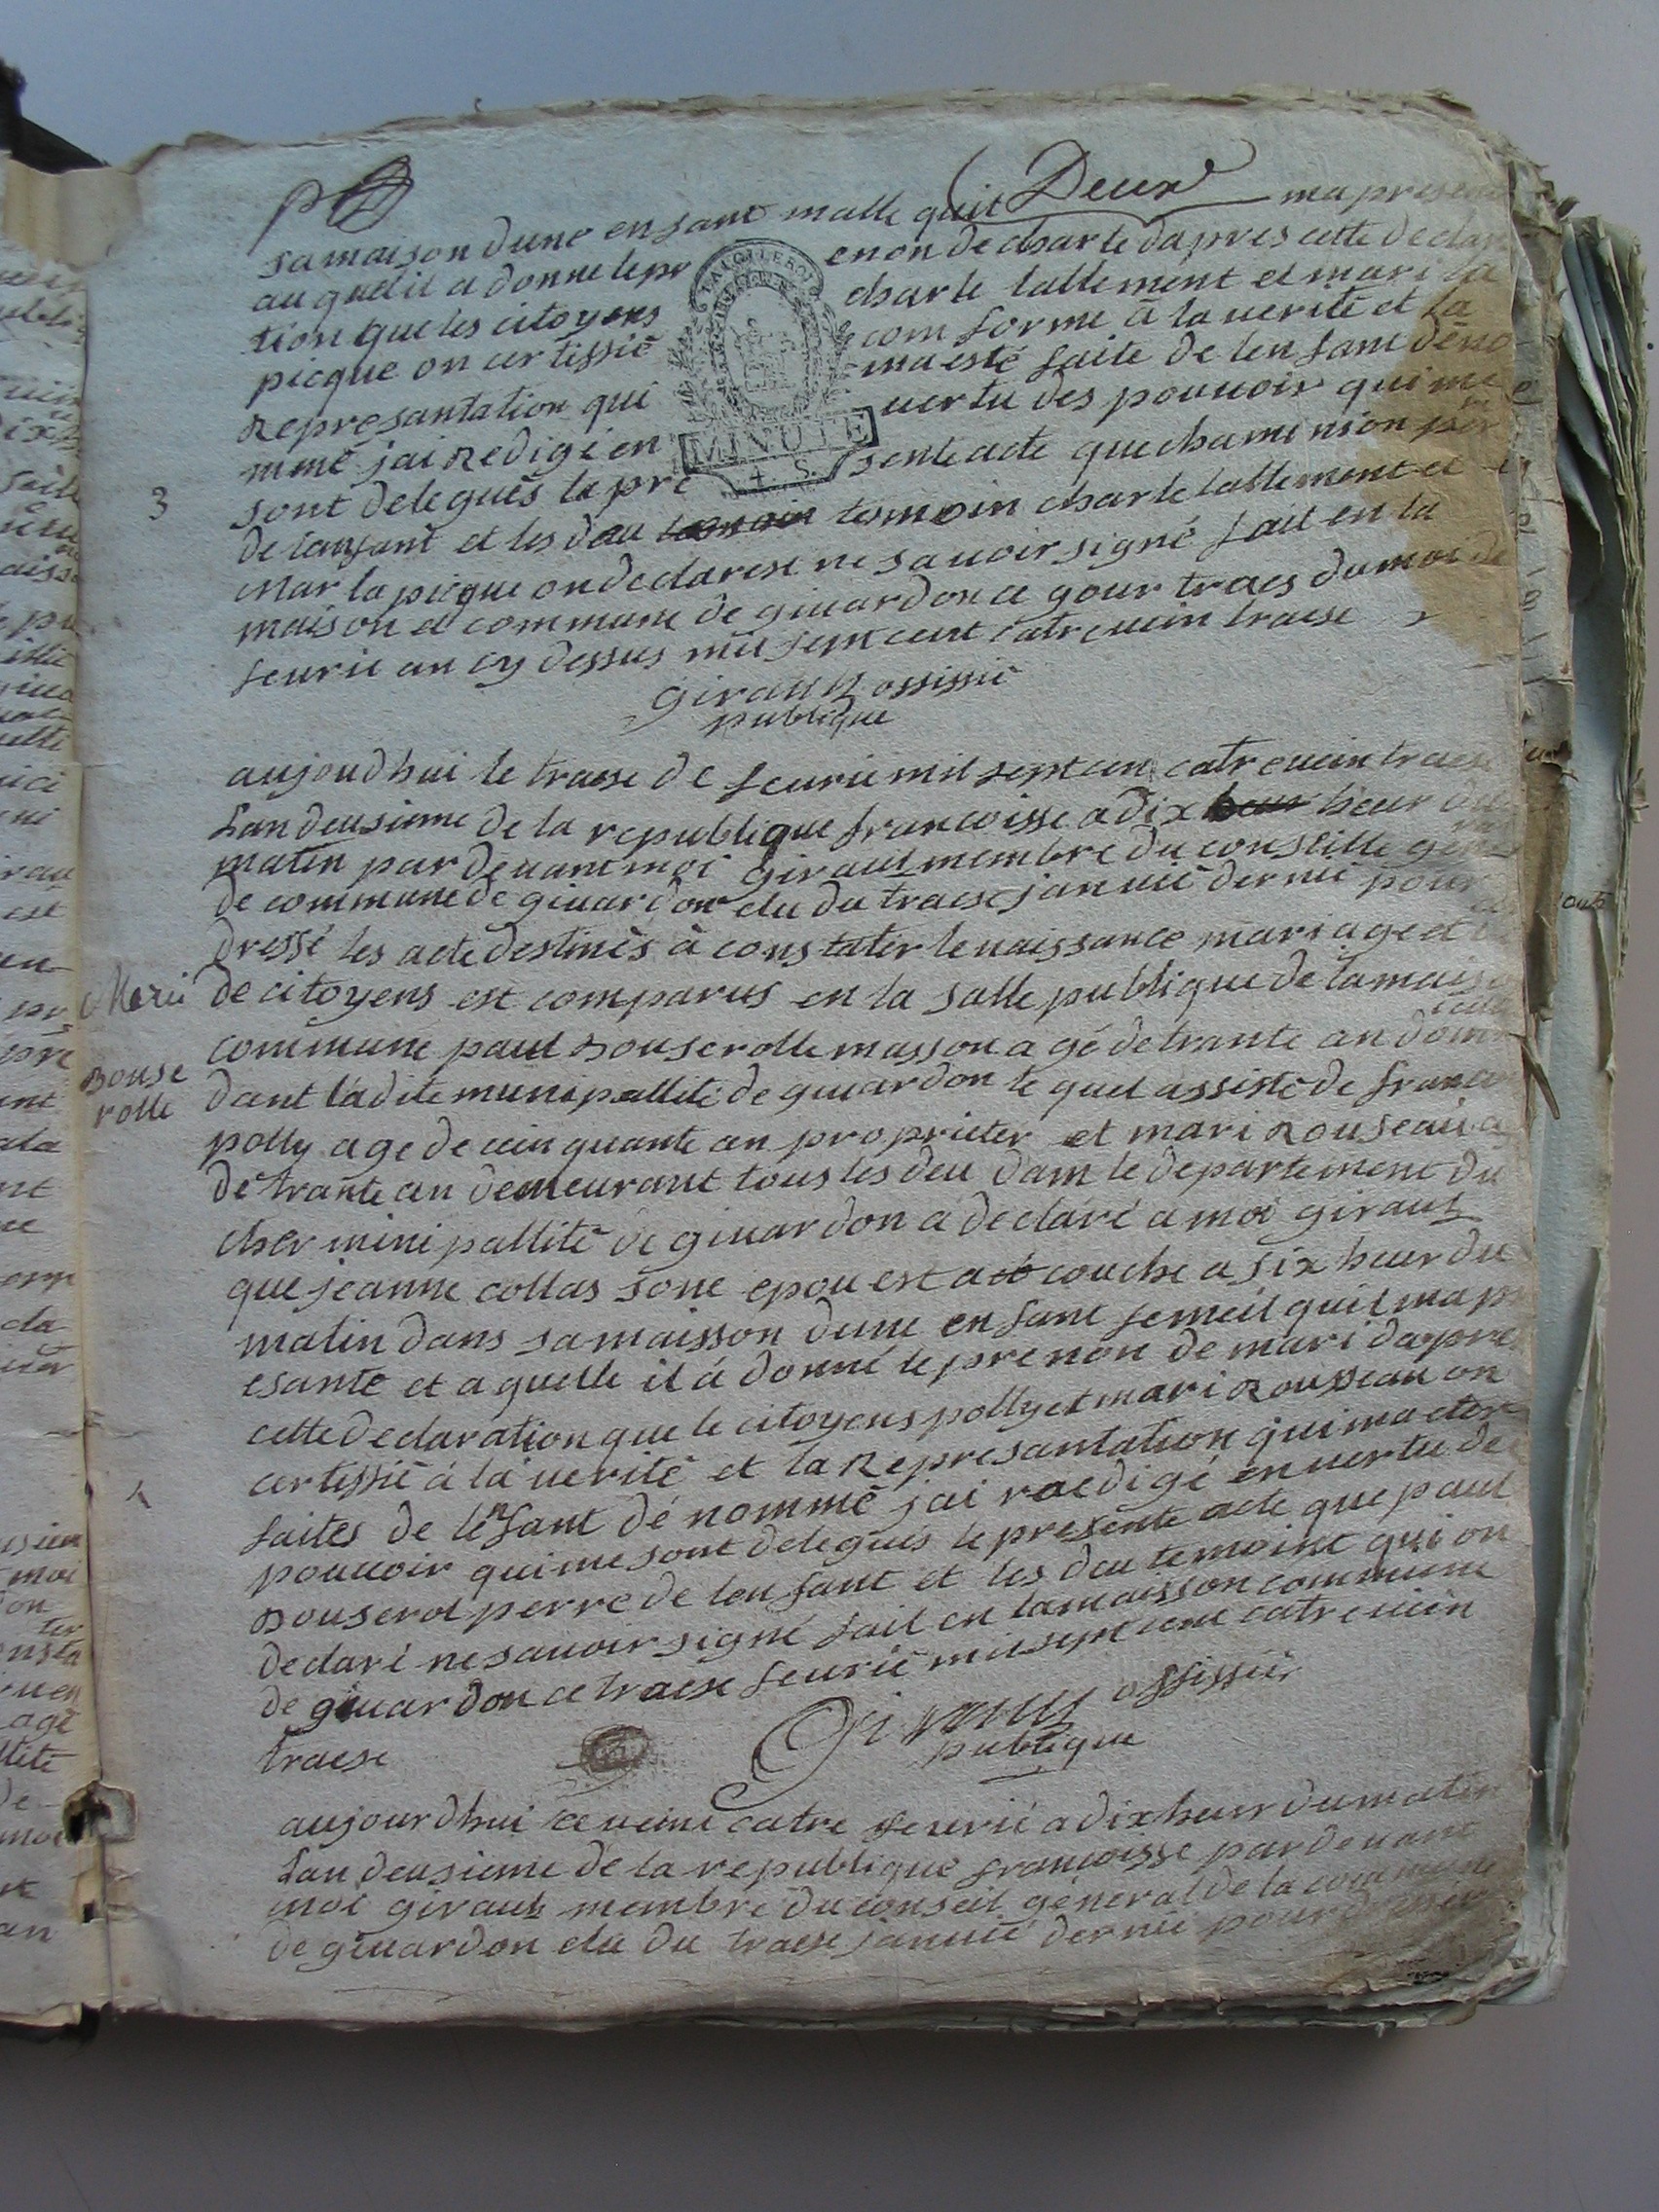 Deux
sa maison dune enfant malle quil ma presente
au quel il a donne le pr enon de charle dapres cette declara
tion que les citoyens charle lallement et mari la
picque on certiffié com forme à la verité et la
representation qui ma esté faite de lenfant déno
mmé jai redigé en vertu des pouvoir qui me
sont delegués le pre sente acte que chamenion per
de lanfant et les deu temoin charle lallement et
mar la picque on declarese ne savoir signé fait en la
maison et commune de givardon ce gour traes du moi de
fevrié an cy dessus mil sem cent catrevein traese
giraux offissié
publique
LA LOI LE ROI
MINUTE
4 S.
3
aujoudhui le traese de fevrie mil septcen catrevein traese
Lan deusieme de la republique francoisse a dix heur du
matin par devant moi giraut membre du conseille gene
ral
de commune de givardon elu du traese janvié dernié pour
dressé les acte destinés à constater le naissance mariage et
de citoyens est comparus en la salle publique de la maiso
commune paul bouserolle masson agé de trante an domi
cille
dant ladite munipallité de givardon le quel assisté de franco
polly age de cin quante an proprieter et mari Rouseau a
de trante an demeurant tous les deu dam le departement du
cher minipallité de givardon a declaré a moi giraut
que jeanne collas sone epou est acouche a six heur du
matin dans sa maisson dune enfant femeil quil ma pr
esante et a quelle il à donné le prenon de mari dapre
cette declaration que le citoyens polly et mari Rousseau on
certiffié à la verité et la Represantation qui ma etee
faites de lenfant dénommé jai raedigé en vertu de
pouvoir qui me sont delegués le presente acte que paul
bouserol perre de lenfant et les deu temoint qui on
declaré ne savoir signé fait en la maisson commune
de givardon ce traese fevrié mil sept cent catrevein
traese
Giraux offissier
publique
Marie
Bouse
rolle
4
aujourdhui ce veint catre fevrié a dix heur du matin
Lan deusieme de la republique francoisse par devant
moi giraut membre du conseil géneral de la commune
de givardon elu du traese janvié dernié pour dresser